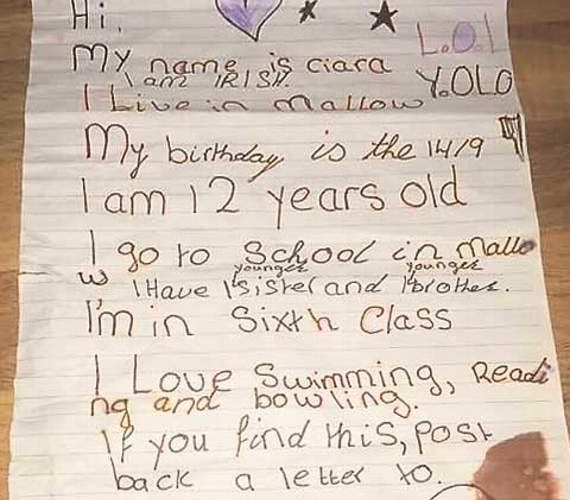 Hi,
L.O.L
My name is ciara
I am IRISH.
Y.OLO
I Live in Mallow
My birthday is the 14/9
I am 12 years old
I go to School in Mallo
w
younger younger
I Have 1 sister and 1 brother.
I'm in Sixth Class
I Love Swimming, Readi
ng and bowling.
If you find this, post
back a letter to.